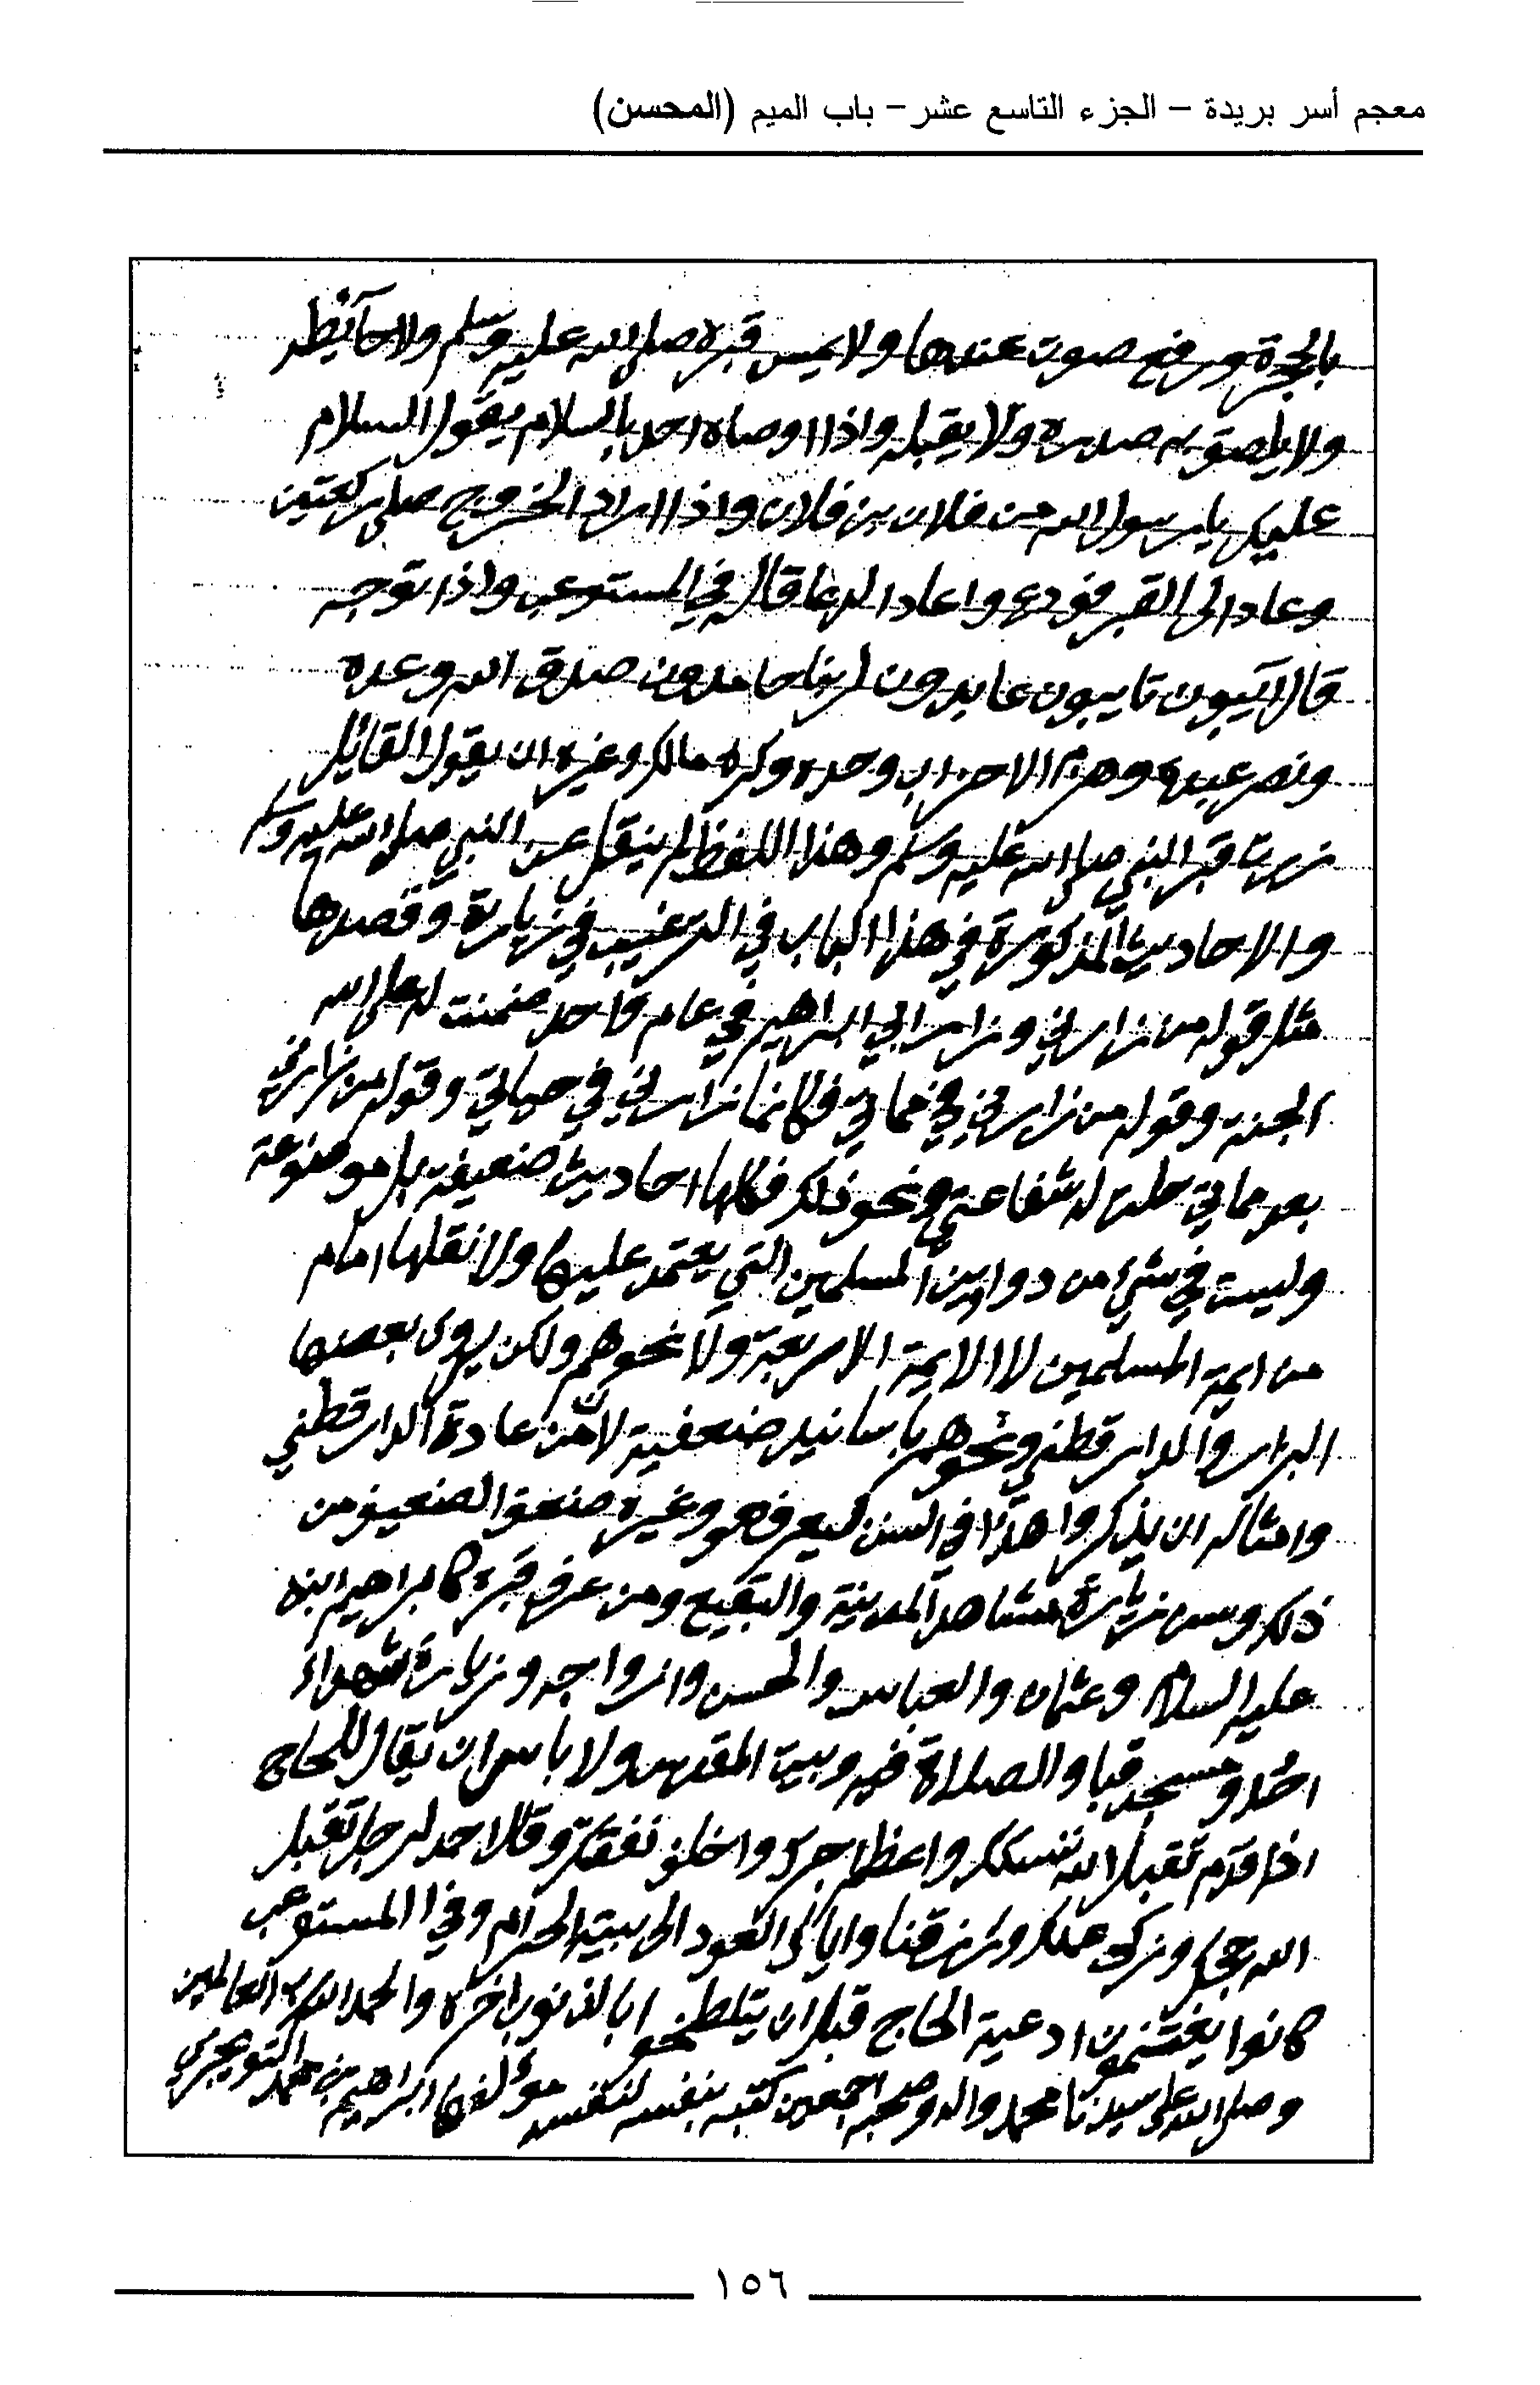 معجم أسر بريدة – الجزء التاسع عشر – باب الميم (المحسن)
بالحجرة ورفع صوت عندها ولا يمس قبره صلى الله عليه وسلم ولا حايطه
ولا يلصق به صدره ولا يقبله واذا اوصاه احد بالسلام يقول السلام
عليك يا رسول الله من فلان بن فلان واذا اراد الخروج صلى ركعتين
وعاد الى القبر فودع واعاد الدعا قاله في المستوعب واذا توجه
قال آيبون تايبون عابدون لربنا حامدون صدق الله وعده
ونصر عبده وهزم الاحزاب وحده وكره مالك وغيره ان يقول القائل
زرت قبر النبي صلى الله عليه وسلم وهذا اللفظ لم ينقل عن النبي صلى الله عليه وسلم
والاحاديث المذكورة في هذا الباب في الترغيب في زيارة وقصدها
مثل قوله من زارني وزار ابي ابراهيم في عام واحد ضمنت له على الله
الجنة وقوله من زارني في مماتي فكانما زارني في حياتي وقوله من زارني
بعد مماتي حلت له شفاعتي ونحو ذلك فكلها احاديث ضعيفة بل موضوعة
وليست في شيء من دواوين المسلمين التي يعتمد عليها ولا نقلها امام
من ايمة المسلمين لا الايمة الاربعة ولا نحوهم ولكن يروى بعضها
البزار والدارقطني ونحوهم باسانيد ضعفية لان من عادة الدارقطني
وامثاله ان يذكروا هذا في السنن ليعرف هو وغيره ضعف الضعيف من
ذلك وسن زيارة مشاهد المدينة والبقيع ومن عرف قبره كابراهيم ابنه
عليه السلام وعثمان والعباس والحسن وازواجه وزيارة شهداء
احد ومسجد قبا والصلاة فيه وبيت المقدس ولا باس ان يقال للحاج
اذا قدم تقبل الله نسكك واعظم اجرك واخلف نفقتك وقال احمد لرجل تقبل
الله حجك وزكى عملك ورزقنا واياك العود الى بيته الحرام وفي المستوعب
كانوا يغتنمون ادعية الحاج قبل ان يتلطخوا بالذنوب اخره والحمد لله رب العالمين
وصلى الله على سيدنا محمد واله وصحبه اجمعين كتبه بنفسه لنفس مؤلفها ابراهيم بن محمد التويجري
١٥٦